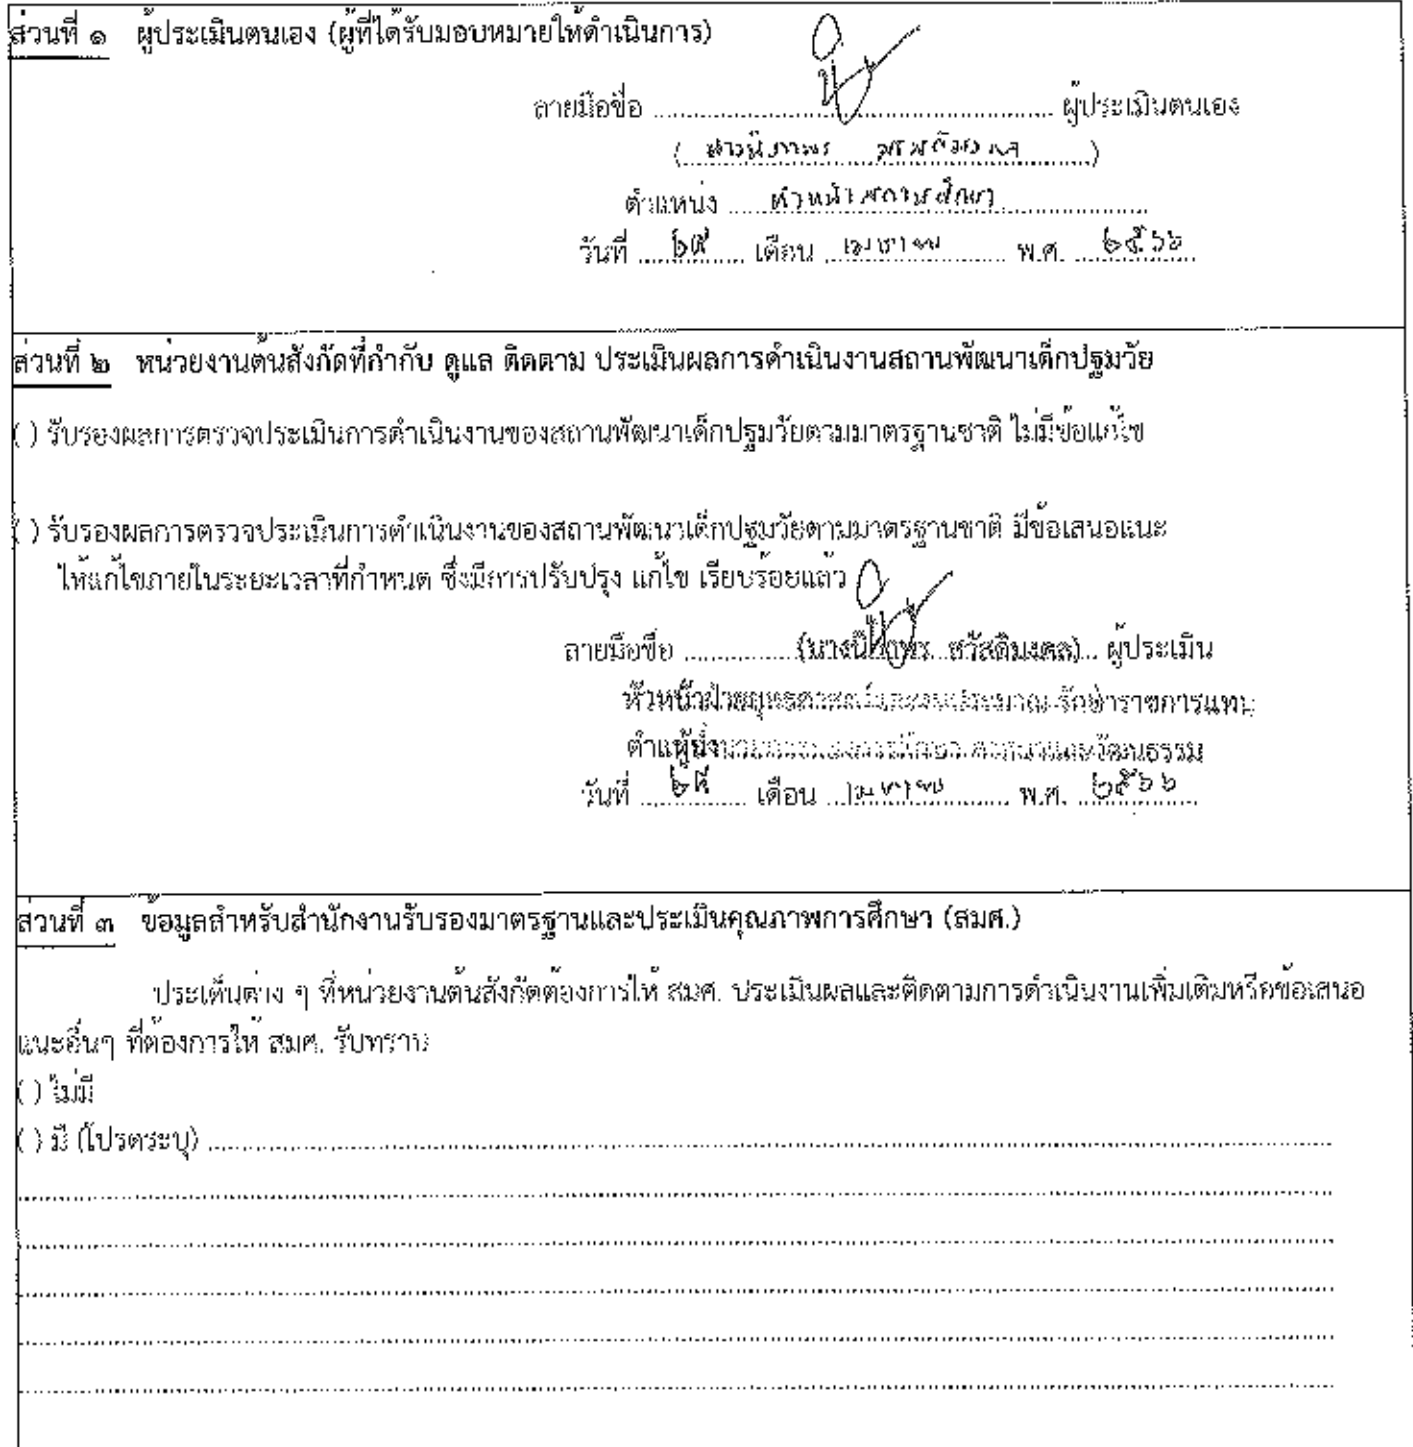 ส่วนที่ ๑ ผู้ประเมินตนเอง (ผู้ที่ได้รับมอบหมายให้ดำเนินการ)
ลายมือชื่อ ........................................ ผู้ประเมินตนเอง
( นางนิภาพร สวัสดิมงคล )
ตำแหน่ง หัวหน้าสถานศึกษา
วันที่ ๒๕ เดือน เมษายน พ.ศ. ๒๕๖๖
ส่วนที่ ๒ หน่วยงานต้นสังกัดที่กำกับ ดูแล ติดตาม ประเมินผลการดำเนินงานสถานพัฒนาเด็กปฐมวัย
( ) รับรองผลการตรวจประเมินการดำเนินงานของสถานพัฒนาเด็กปฐมวัยตามมาตรฐานชาติ ไม่มีข้อแก้ไข
( ) รับรองผลการตรวจประเมินการดำเนินงานของสถานพัฒนาเด็กปฐมวัยตามมาตรฐานชาติ มีข้อเสนอแนะ
ให้แก้ไขภายในระยะเวลาที่กำหนด ซึ่งมีการปรับปรุง แก้ไข เรียบร้อยแล้ว
ลายมือชื่อ (นางนิภาพร สวัสดิมงคล) ผู้ประเมิน
หัวหน้าฝ่ายยุทธศาสตร์และงบประมาณ รักษาราชการแทน
วัฒนธรรม
วันที่ เดือน เมษายน พ.ศ. ๒๕๖๖
ส่วนที่ ๓ ข้อมูลสำหรับสำนักงานรับรองมาตรฐานและประเมินคุณภาพการศึกษา (สมศ.)
ประเด็นต่าง ๆ ที่หน่วยงานต้นสังกัดต้องการให้ สมศ. ประเมินผลและติดตามการดำเนินงานเพิ่มเติมหรือข้อเสนอ
แนะอื่นๆ ที่ต้องการให้ สมศ. รับทราบ
( ) ไม่มี
( ) มี (โปรดระบุ) ........................................